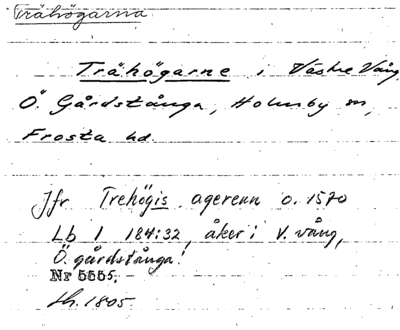 Trähögarna
Trähögarne i Västre Vång
Ö. Gårdstånga, Holmby sn,
Frosta hd.
Jfr Trehögis agerenn o. 1570
Lb 1 184:32, åker i V. vång,
Ö. gårdstånga!
Nr 5555.
1805.